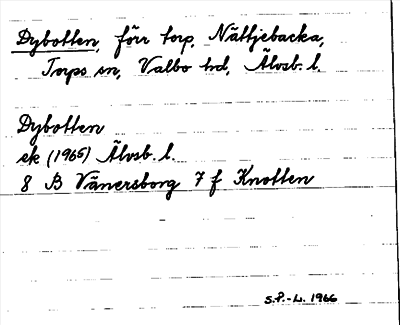 Dybotten, förr torp, Nättjebacka,
Torps sn, Valbo hd, Älvsb. l.
Dybotten
ek (1965) Älvsb. l.
8 B Vänersborg 7 f Knotten
S.P.-L. 1966